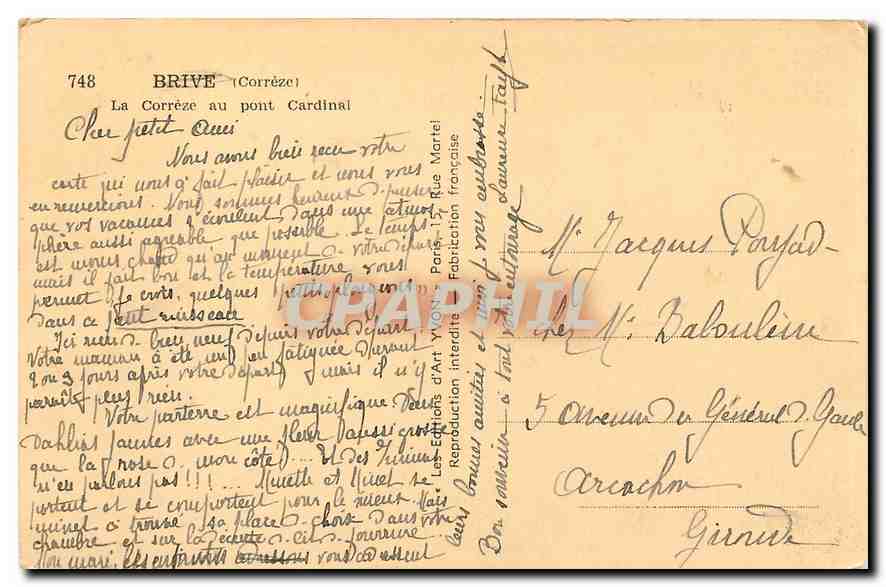 748 BRIVE (Corrèze)
La Corrèze au pont Cardinal
Cher petit Ami
Nous avons bien reçu votre
carte qui nous a fait plaisir et nous vous
en remercions. Nous sommes heureux de penser
que vos vacances s'écoulent dans une atmos
phère aussi agréable que possible. Le temps
est moins chaud qu'au moment de votre départ
mais il fait bon et la température vous
permet, je crois, quelques petits plongeons
dans ce petit ruisseau
Ici rien de bien neuf depuis votre départ
Votre maman a été un peu fatiguée durant
2 ou 3 jours après votre départ, mais il n'y
paraît plus rien.
Votre parterre est magnifique. Deux
Dahlias jaunes avec une fleur aussi grosse
que la rose de mon côté... Et des
n'en parlons pas!!!... Minette et Minet se
portent et se comportent pour le mieux. Mais
minet a trouvé sa place de choix dans votre
chambre et sur la descente de lit de fourrure
Mon mari, les enfants vous adressent
leurs bonnes amitiés et moi je vous embrasse
Bon souvenir à tout votre entourage
• Les Editions d'Art YVON • Paris, 15, Rue Martel
Reproduction interdite Fabrication française
CPAPHIL
Mr Jacques Poujad
chez Mr Baboulène
5 avenue du Général de Gaule
Arcachon
Gironde